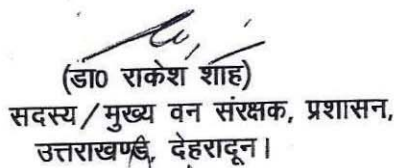 (डा0 राकेश शाह)
सदस्य/मुख्य वन संरक्षक, प्रशासन,
उत्तराखण्ड, देहरादून।